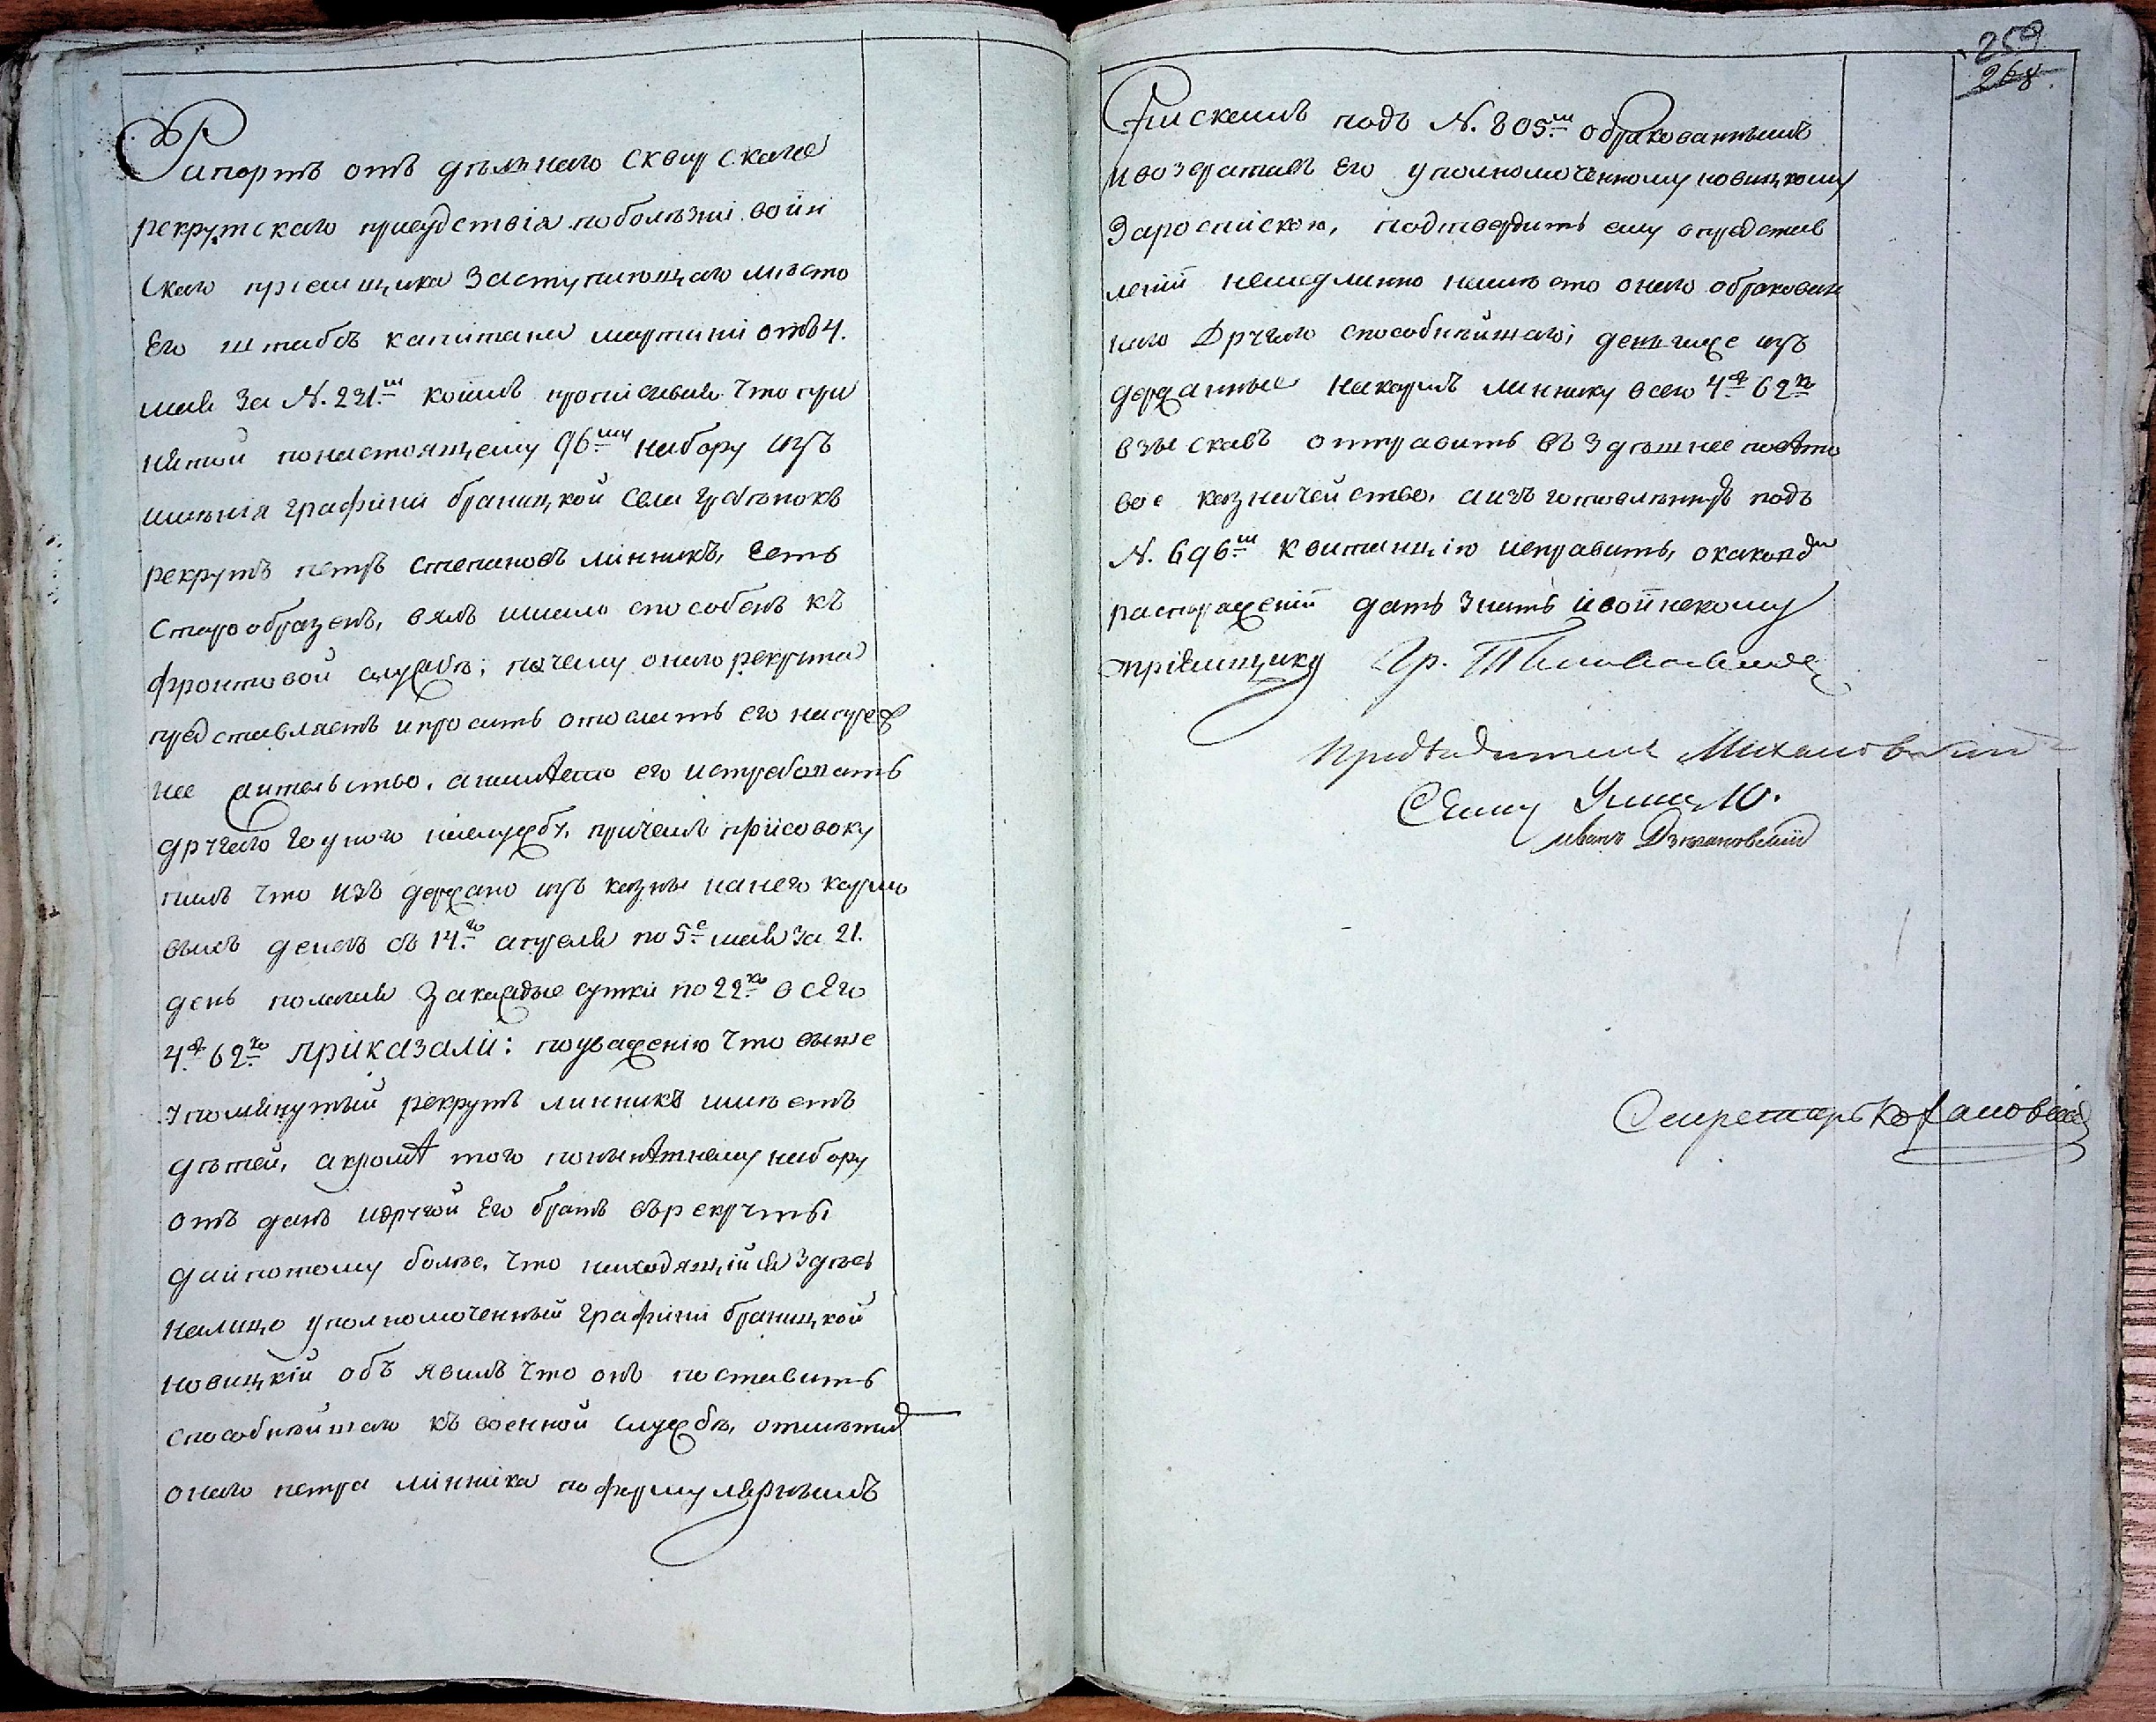 Рапортъ отъ дѣльнаго сквирскаго
рекрутскаго присудствія поболѣзні воін
скаго пріемщика Заступающаго мѣсто
Его штабсъ капитана мартині отъ 4.
мая За N. 231.м коимъ прописывая что при
нятой понастоящему 96му набору изъ
имѣнія графіни браницкой села гребѣнокъ
рекрутъ петръ степановъ лінникъ, есть
старообразенъ, вялъ имало способенъ къ
фронтовой службѣ; почему оного рекрута
представляетъ ипроситъ отослать его напреж
нее жительство, анамѣсто его истребовать
другаго годного кислужбѣ, причемъ присовоку
пилъ что издержано изъ казны нанего кормо
выхъ денегъ съ 14.го апреля по 5е мая За 21.
день полагая Закаждые сутки по 22ко всего
4р 62ко приказалі: поуваженію что выше
упомянутый рекрутъ линникъ имѣетъ
дѣтей, акромѣ того понынѣтнему набору
отъ данъ идругой Его братъ въ рекруты
даипотому болѣе, что находящійся здѣсь
налицо уполномоченный графіни браницкой
новицкій объ явилъ что онъ поставитъ
способнѣйшаго къ военной службѣ, отмѣтя
оного петра лінника поформулярнымъ
Спискамъ подъ N. 805м обракованнымъ
ивозвративъ Его уполномоченному новицкому
Зароспіскою, подтвердить ему опредстав
леніи немедлѣнно намѣсто оного обракован
ного Другаго способнѣйшаго; деньгиже из
держанные накормъ линнику всего 4р 62ко
взыскавъ отправить въ здѣшнее повѣто
вое казначейство, аизъготовлѣнную подъ
N. 696м квитанцію исправить, окаковом
распоряженіи дать знать ивоинскому
пріемщику
Предводитель Михаловскій
Иванъ
Секретарь Кохановскій
259
268.